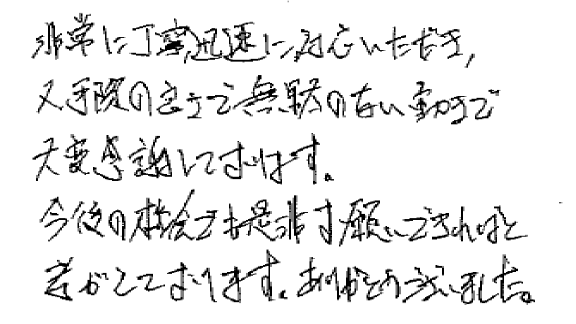 非常に丁寧、迅速に対応いただき、
又手際の良さで無駄のない動きで
大変感謝しております。
今後の機会でも是非お願いできればと
考がえております。ありがとうございました。